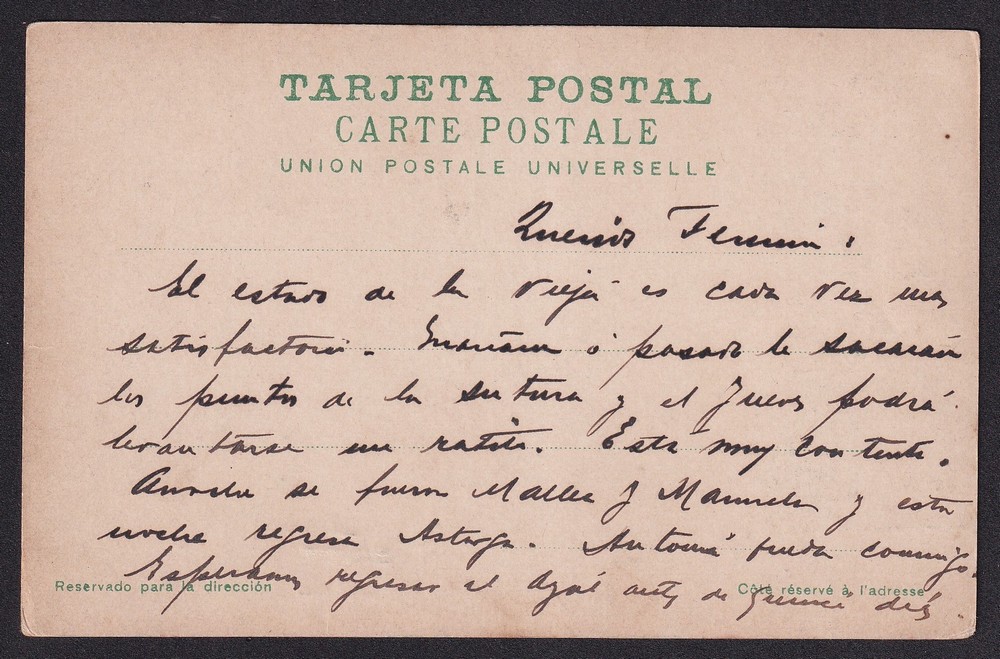 TARJETA POSTAL
CARTE POSTALE
UNION POSTALE UNIVERSELLE
Querido Fermin:
El estado de la vieja es cada vez mas
satisfactorio. Mañana ó pasado le sacarán
los puntos de la sutura y el Jueves podrá
levantarse un ratito. Está muy contenta.
Anoche se fueron y Manuela y esta
noche regresa Astorga. Antonia queda conmigo.
Esperamos regresar al antes de quince días
Reservado para la dirección
Côté réservé à l'adresse